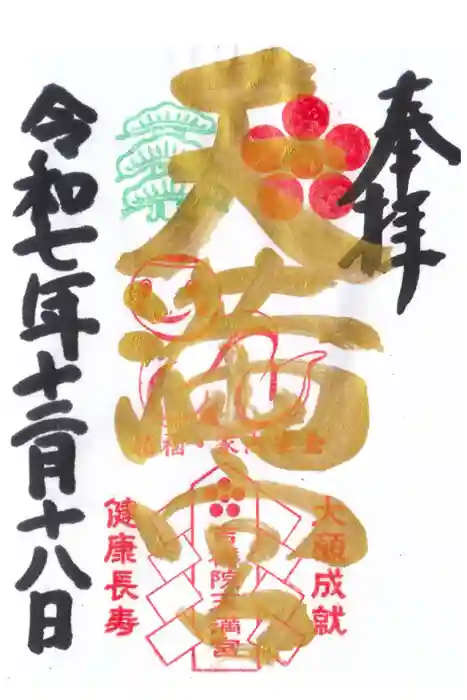 奉拝
天満宮
大願成就
健康長寿
令和七年十二月十八日